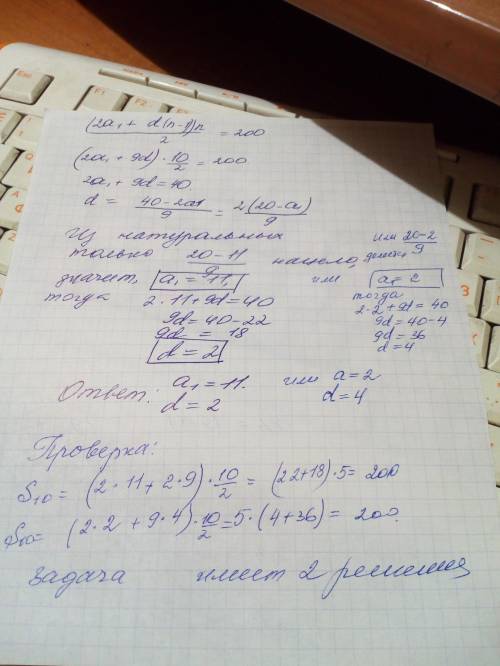 (2a₁ + d(n-1))n / 2 = 200
(2a₁ + 9d) · 10/2 = 200
2a₁ + 9d = 40
d = (40-2a₁)/9 = 2(20-a₁)/9
Из натуральных
только (20-11)/9 нацело делит, или (20-2)/9
значит, a₁ = 11, или a₁ = 2
тогда 2·11+9d=40 тогда 2·2+9d = 40
9d = 40-22 9d = 40-4
9d = 18 9d = 36
d = 2 d = 4
Ответ: a₁ = 11. или a = 2
d = 2 d = 4
Проверка:
S₁₀ = (2·11 + 2·9)·10/2 = (22+18)·5 = 200
S₁₀= (2·2 + 9·4)·10/2 = 5·(4+36) = 200.
задача имеет 2 решения